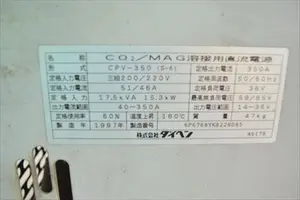 名称 CO₂/MAG溶接用直流電源
形式 CPV-350 (S-6) 定格出力電流 350A
定格入力電圧 三相200/220V 定格周波数 50/60Hz
定格入力電流 51/46A 定格負荷電圧 36V
定格入力 17.5kVA 15.3kW 最高無負荷電圧 59/65V
出力電流範囲 40-350A 出力電圧範囲 14-36V
定格使用率 50% 温度上昇 160℃ 質量 47kg
製造年 1997年 製造番号
株式会社 ダイヘン